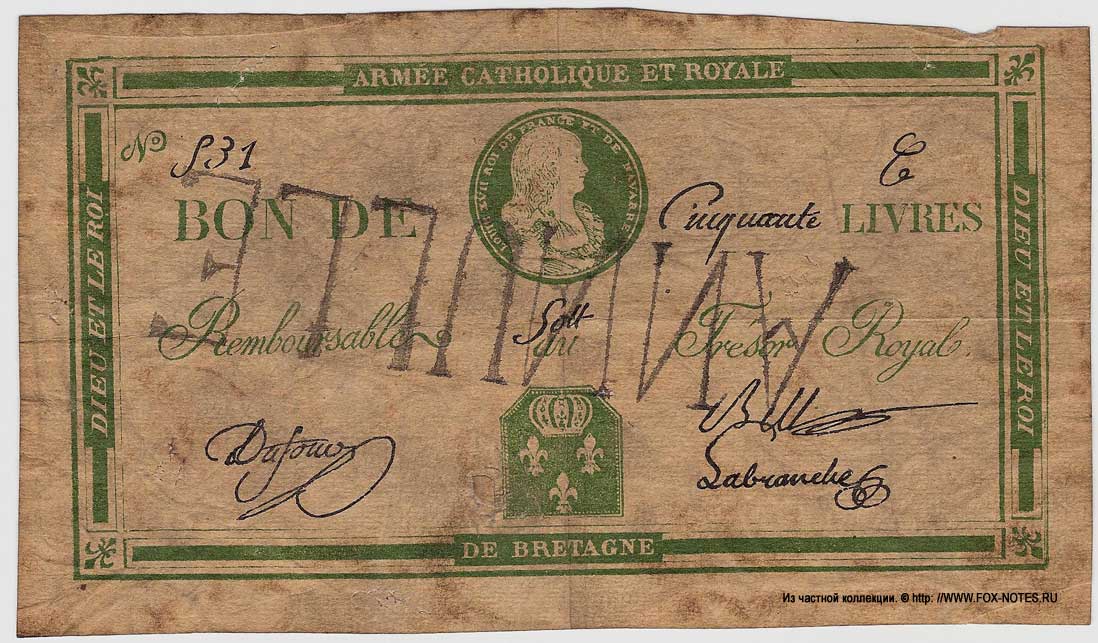 ARMÉE CATHOLIQUE ET ROYALE
LOUIS XVII ROI DE FRANCE ET DE NAVARRE
No 531
BON DE Cinquante LIVRES
Remboursable au Trésor Royal.
Dufour
Labranche
DIEU ET LE ROI
DIEU ET LE ROI
DE BRETAGNE
Из частной коллекции. © http: //WWW.FOX-NOTES.RU